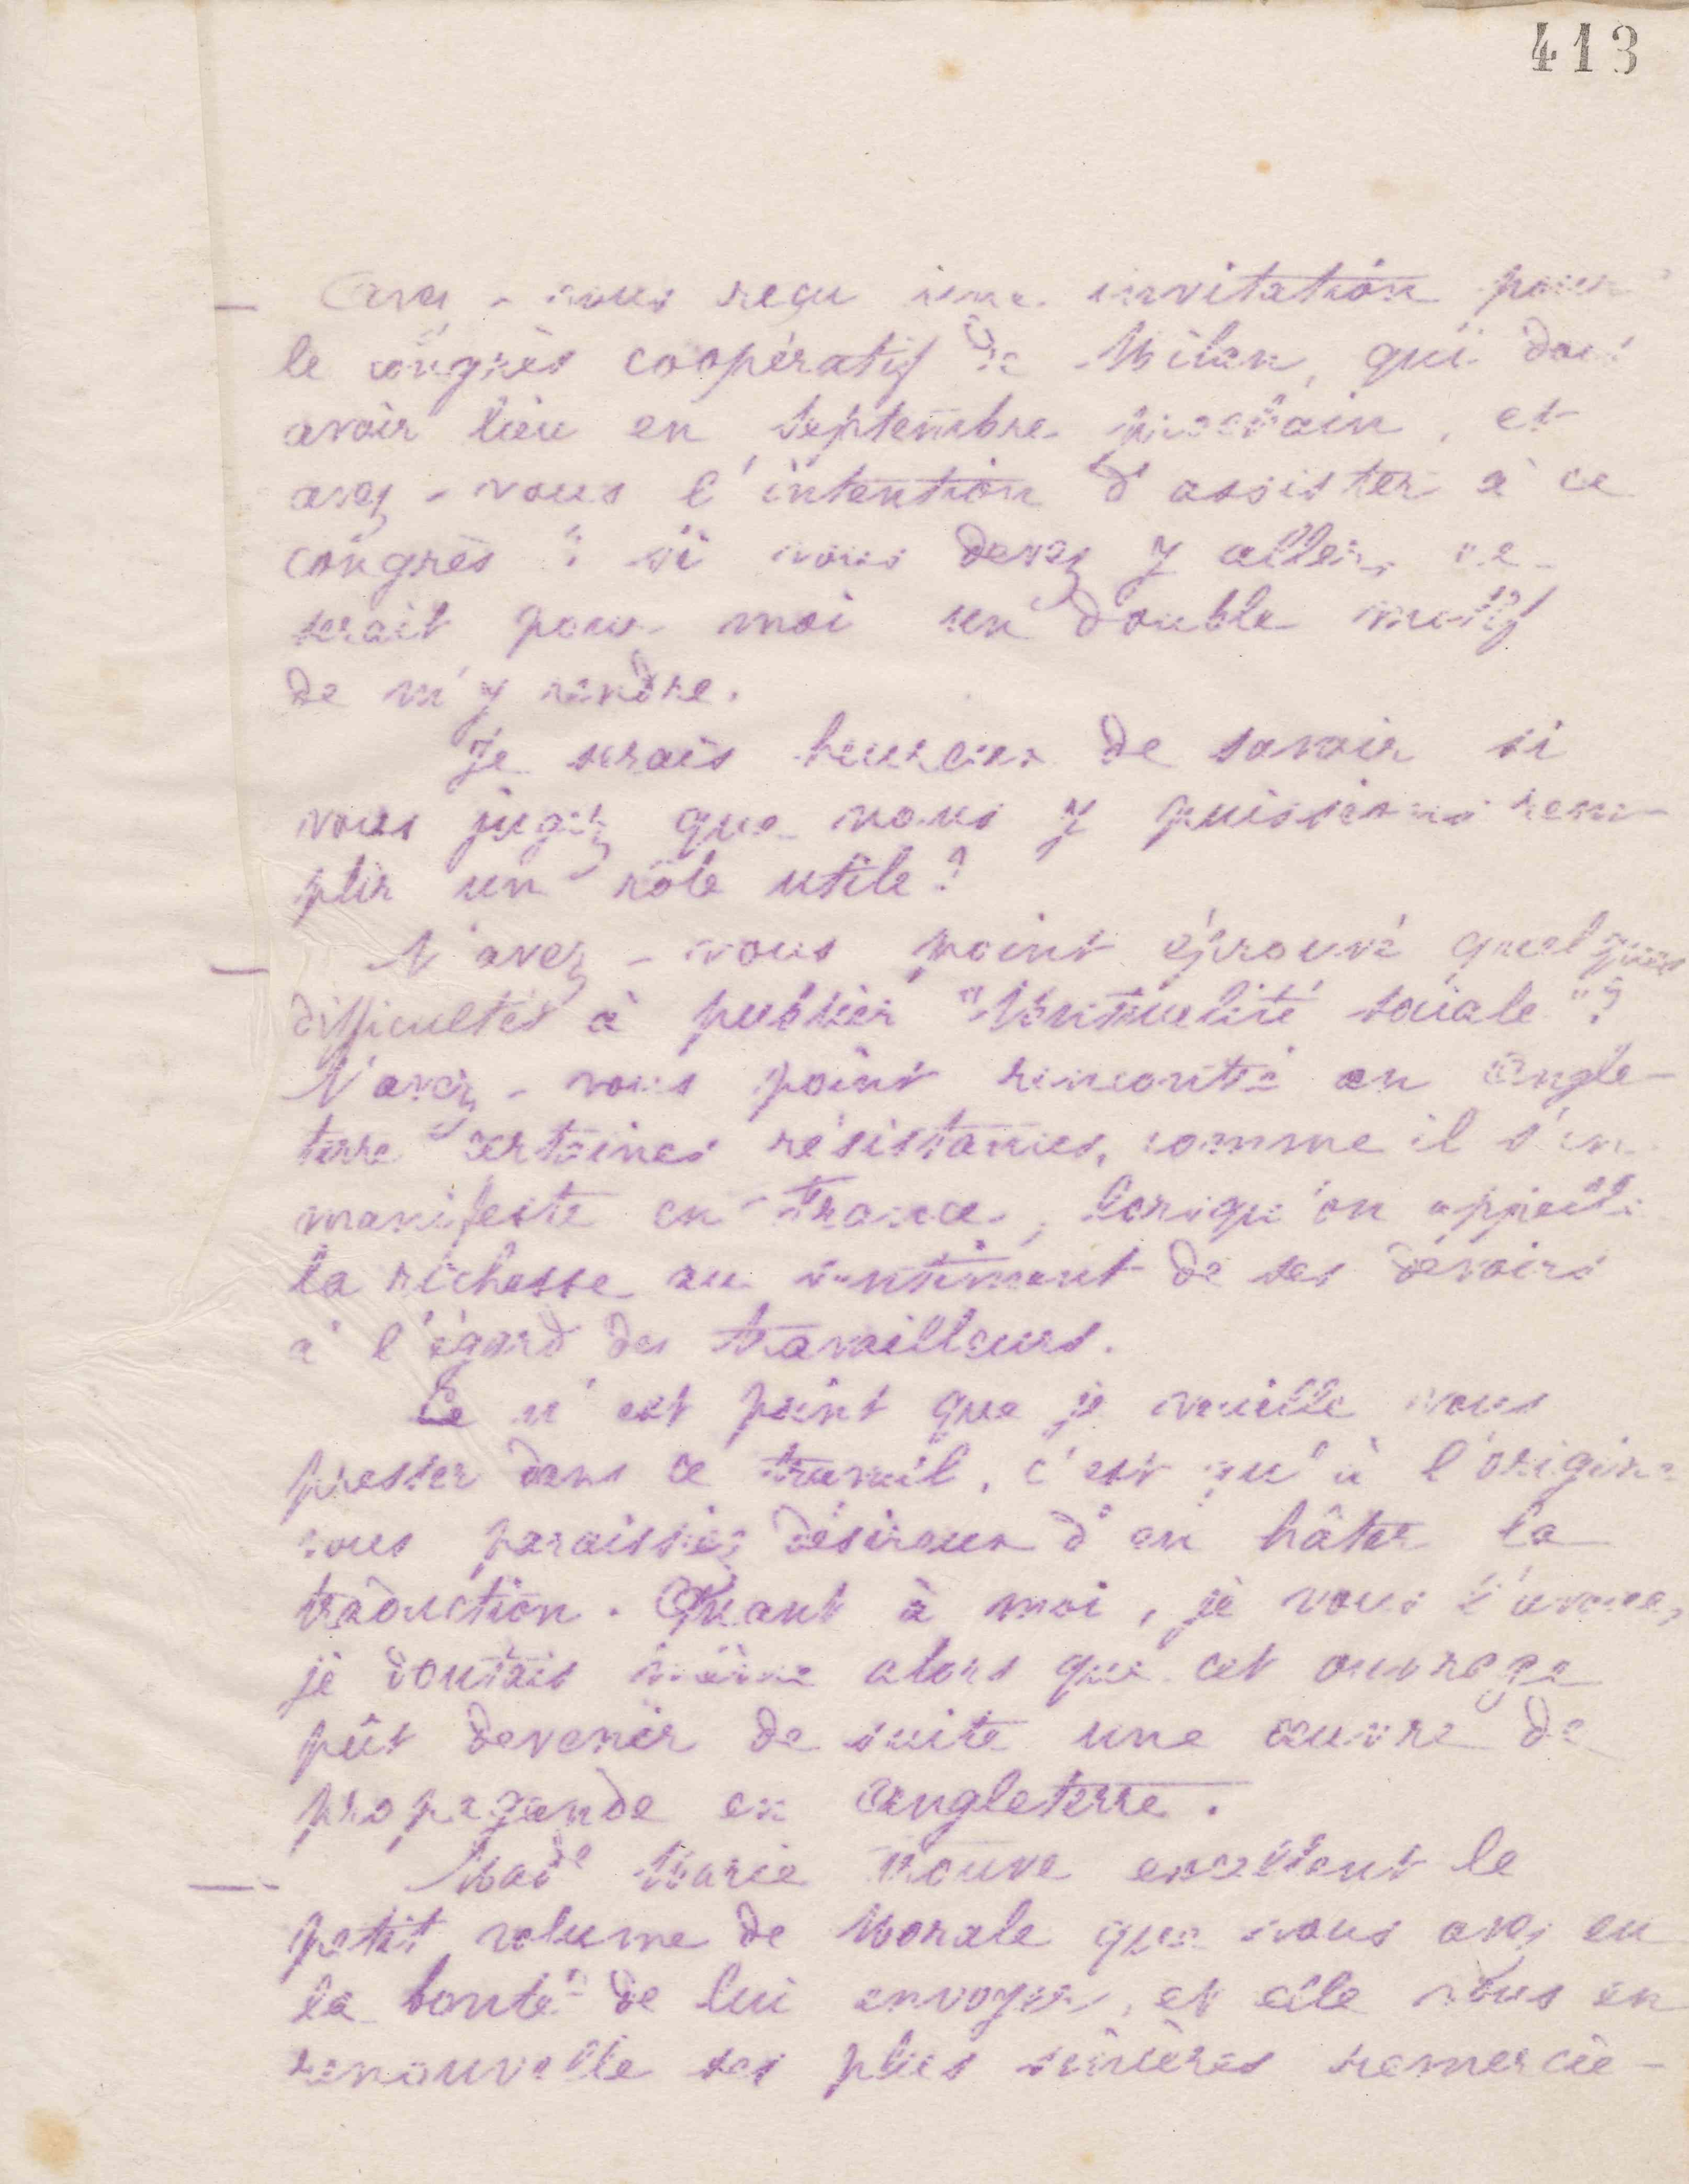 413
Avez-vous reçu une invitation pour
le congrès coopératif de Milan, qui doit
avoir lieu en Septembre prochain, et
avez-vous l'intention d'assister à ce
congrès ? si vous devez y aller, ce
serait pour moi un double motif
de m'y rendre.
Je serais heureux de savoir si
vous jugez que nous y puissions rem-
plir un rôle utile ?
N'avez-vous point éprouvé quelques
difficultés à publier "Mutualité sociale" ?
N'avez-vous point rencontré en Angle-
terre certaines résistances, comme il s'en
manifeste en France, lorsqu'on appelle
la richesse au sentiment de ses devoirs
à l'égard des travailleurs.
Ce n'est point que je veuille vous
presser dans ce travail, c'est qu'à l'origine
vous paraissiez désireux d'en hâter la
traduction. Quant à moi, je vous l'avoue,
je doutais même alors que cet ouvrage
pût devenir de suite une œuvre de
propagande en Angleterre.
Made Marie trouve excellent le
petit volume de Morale que vous avez eu
la bonté de lui envoyer, et elle vous en
renouvelle ses plus sincères remercie-